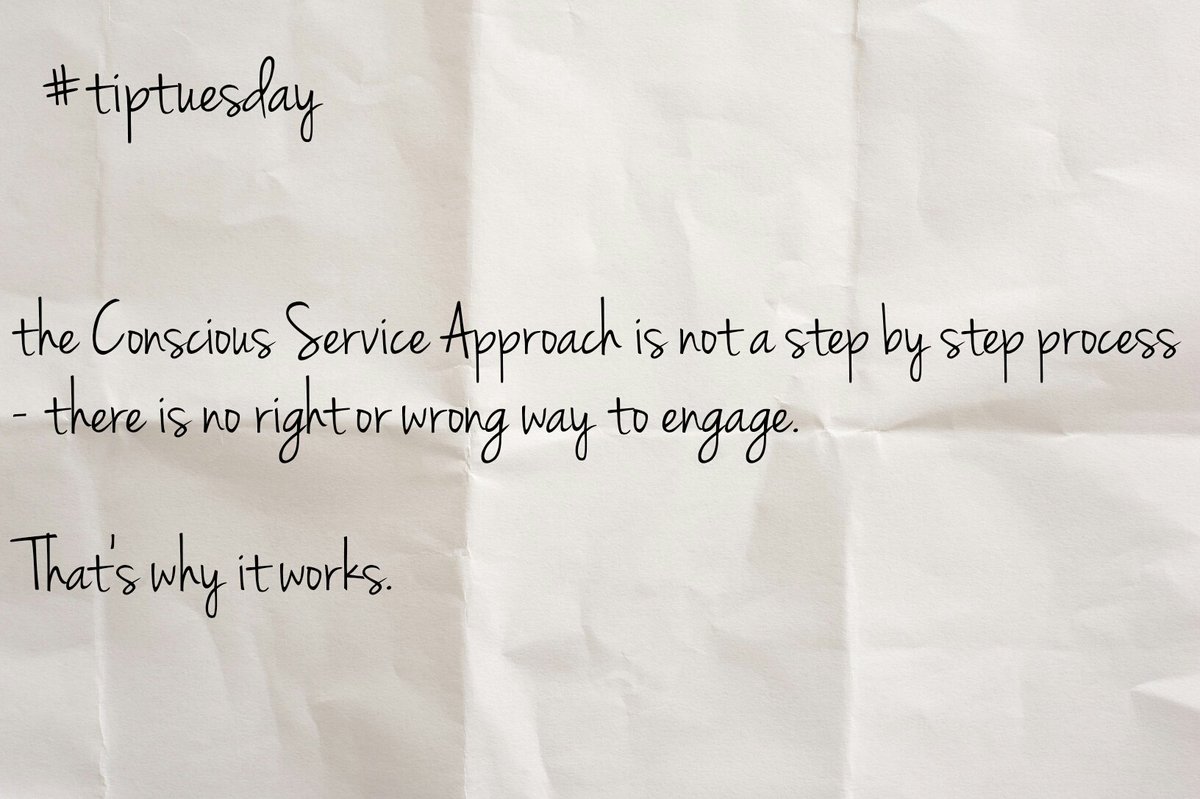 #tiptuesday
the Conscious Service Approach is not a step by step process
- there is no right or wrong way to engage.
That's why it works.